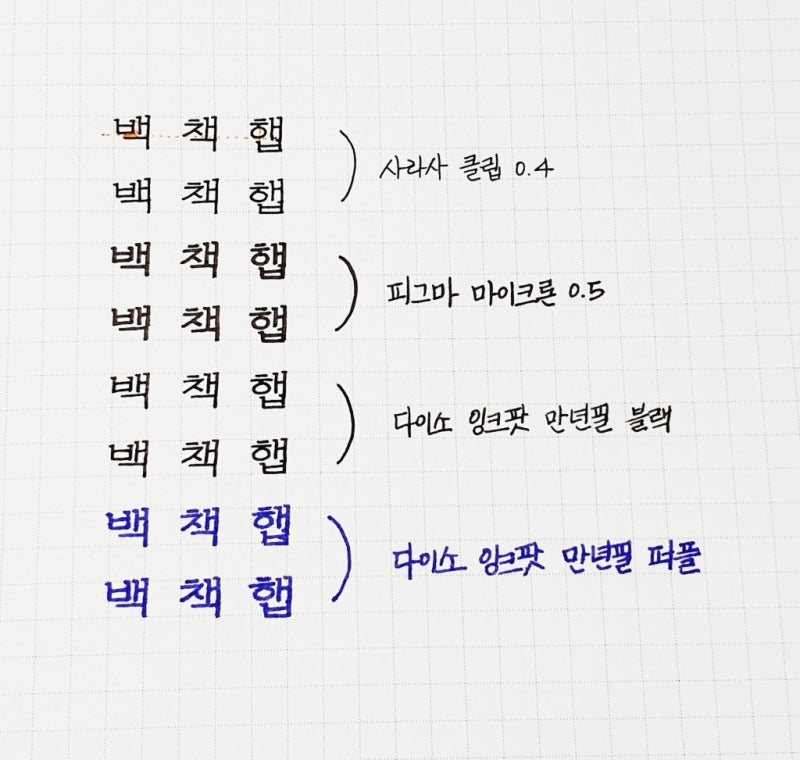 백 책 햅
사라사 클립 0.4
백 책 햅
백 책 햅
피그마 마이크론 0.5
백 책 햅
백 책 햅
다이소 잉크팟 만년필 블랙
백 책 햅
백 책 햅
다이소 잉크팟 만년필 퍼플
백 책 햅